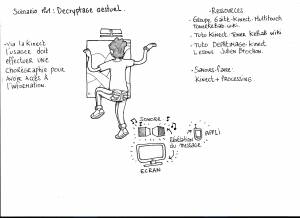 Scénario n°1: Décryptage gestuel.
- Via la Kinect
l'usager doit
effectuer une
chorégraphie pour
avoir accès à
l'information.
- Ressources
- Groupe Gaité-Kinect Multitouch
TomerKebab wiki
- Tuto Kinect Tomer Kebab wiki
- Tuto DEMONTAGE-kinect
Lessous Julien Brochon.
- Savoirs-faire:
Kinect + Processing
SONORE
Révélation
du message
APPLI.
ECRAN